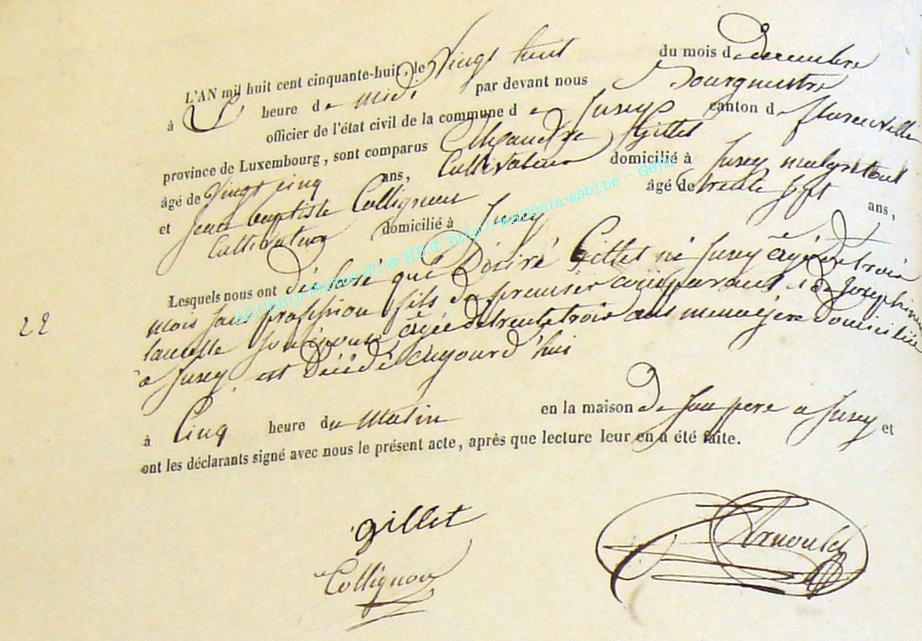 L'AN mil huit cent cinquante-huit, le Vingt huit du mois d decembre
à heure de midi par devant nous Bourgmestre
officier de l'état civil de la commune d e Jusey canton d e florenville
province de Luxembourg, sont comparus Alexandre Gillet
âgé de Vingt cinq ans, Cultivateur domicilié à Jusey
et Jean baptiste Collignon âgé de trente sept ans,
Cultivateur domicilié à Jusey
Lesquels nous ont déclaré que Désiré Gillet né Jusey âgé de trois
mois sans profession fils du premier comparant et de Josephine
22
âgée de trente trois ans menagère domiciliée
à Jusey, est décédé aujourd'hui
à Cinq heure du Matin en la maison de son pere a Jusey et
ont les déclarants signé avec nous le présent acte, après que lecture leur en a été faite.
gillet
Collignon
Arnould